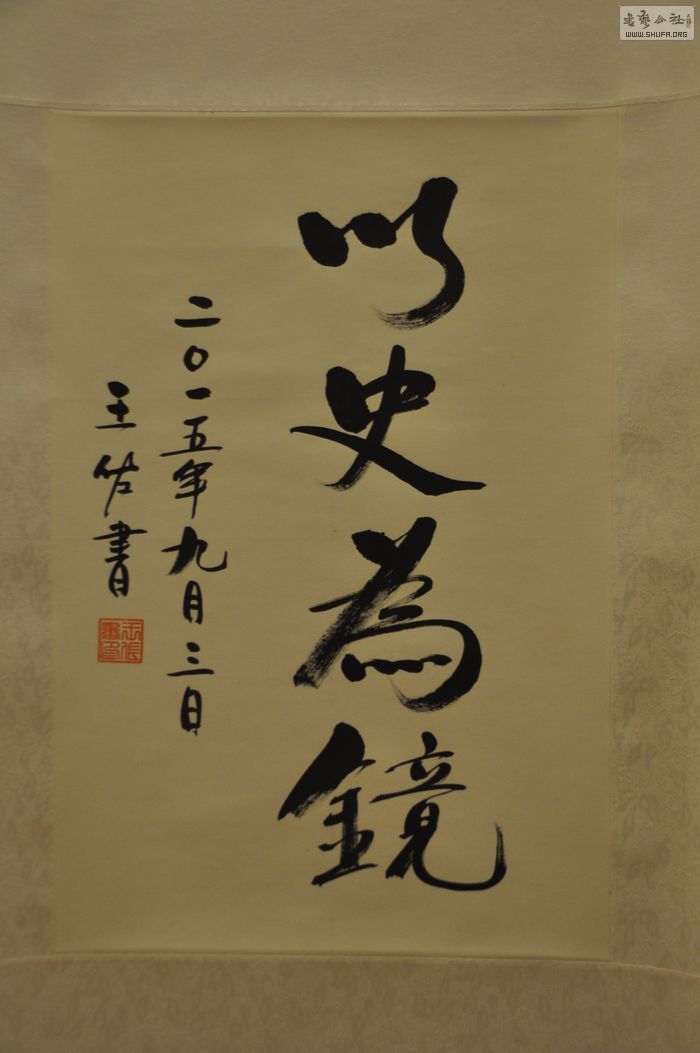 以史為鏡
二〇一五年九月三日
王佐書
書藝公社
WWW.SHUFA.ORG